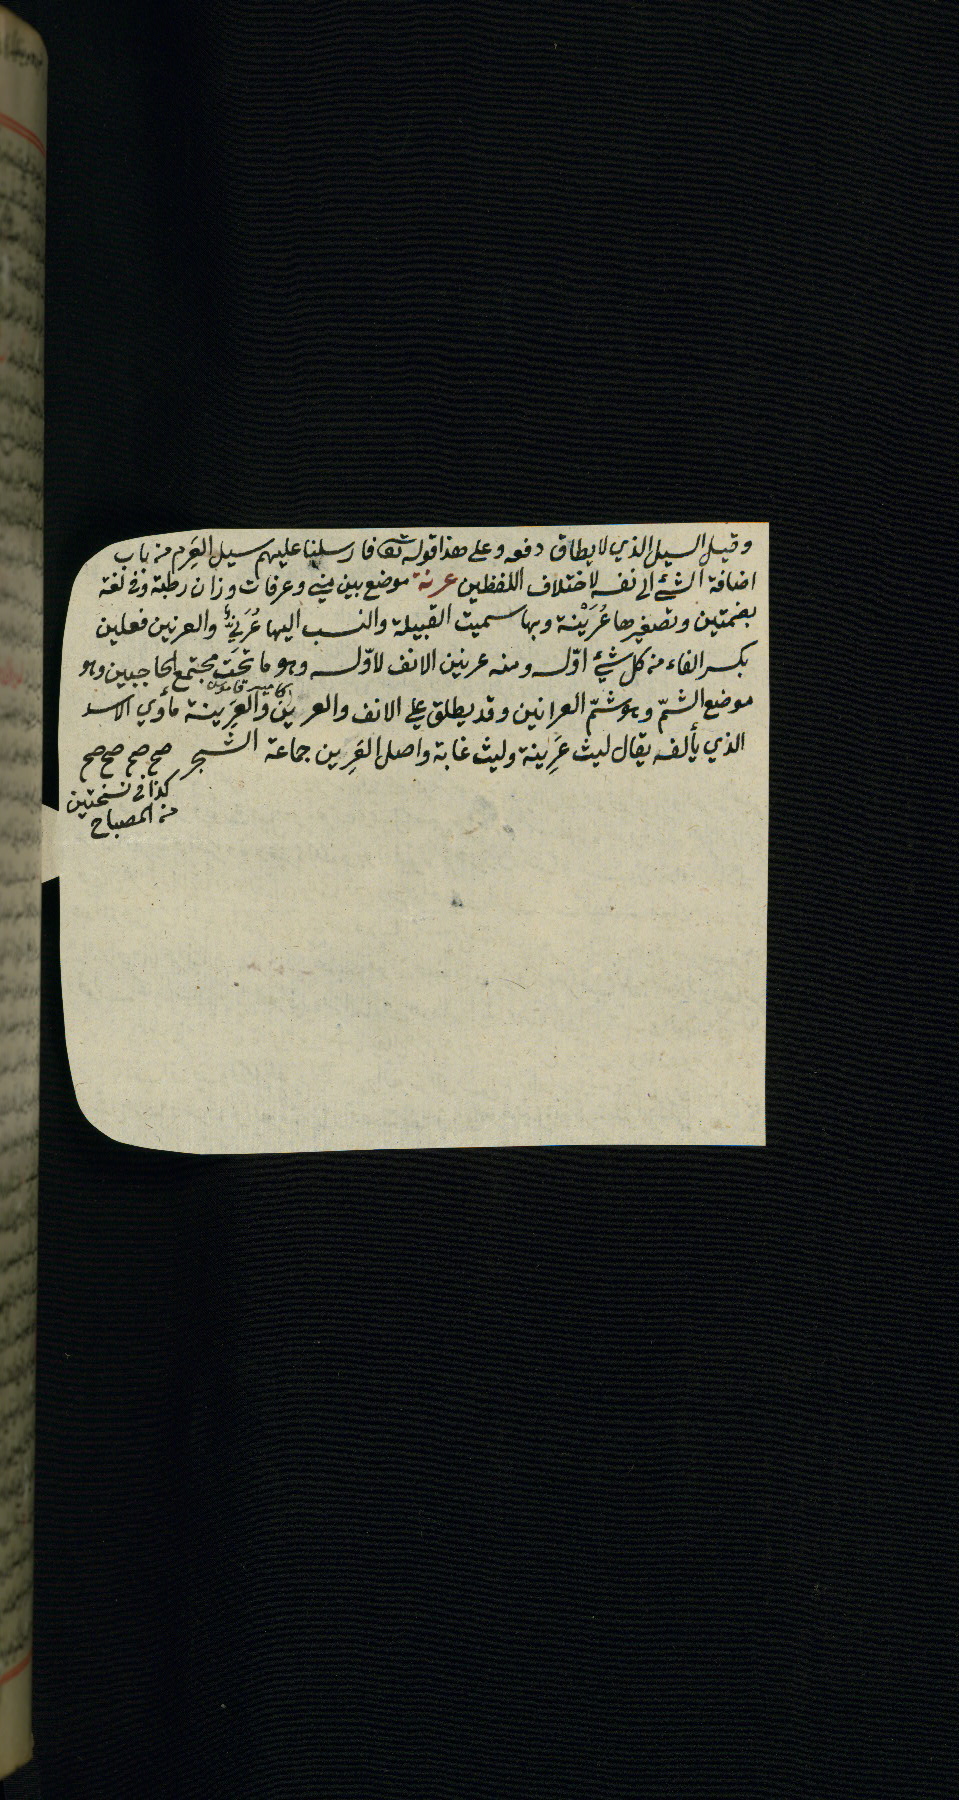 وقيل السيل الذي لا يطاق دفعه وعلى هذا قوله تعا فارسلنا عليهم سيل العَرِم من باب
اضافة الشئ الى نفسه لاختلاف اللفظين عرنة موضع بين منى وعرفات وزان رطبة وفى لغة
بضمتين وتصغيرها عُرَيْنة وبها سميت القبيلة والنسب اليها عُرَنيّ والعرنين فعلين
بكسر الفاء من كل شئ اوّله ومنه عرنين الانف لاوّله وهو ما تحت مجتمع الحاجبين وهو
موضع الشمّ وهو شمّ العرانين وقد يطلق على الانف والعرين والعَرِينة مأوي الاسد
كأمير قاموس
الذي يألفه يقال ليث عَرِينة وليث غابة واصل العَرِين جماعة الشجر
صح صح صح صح
كذا فى نسختين
من المصباح